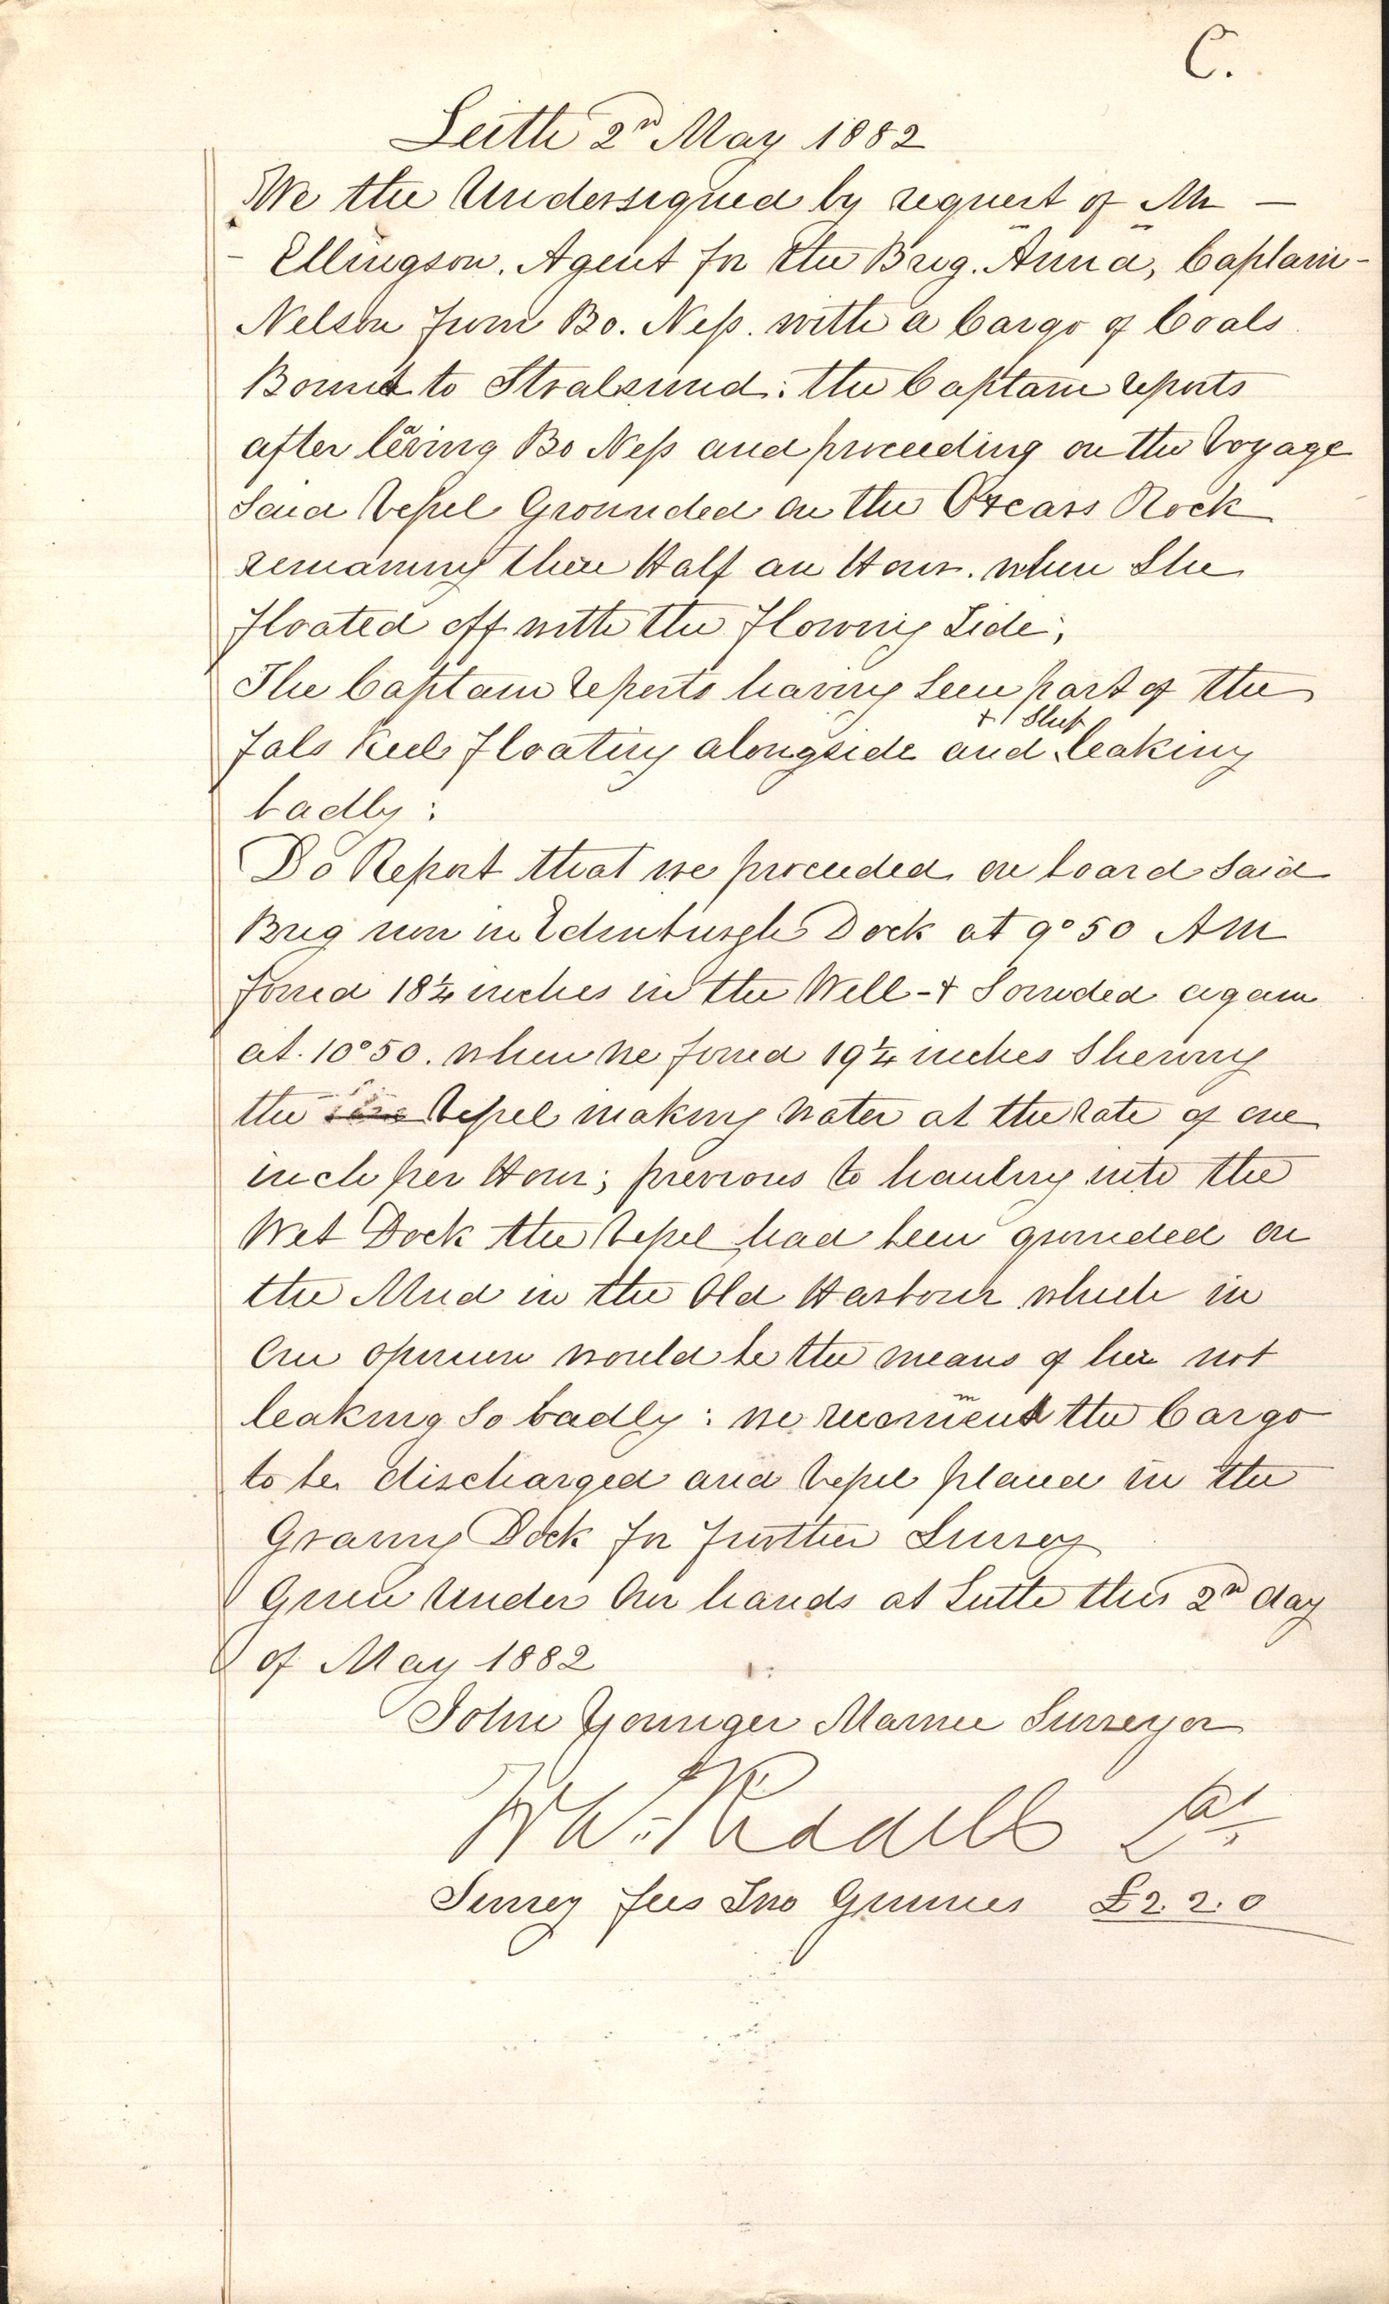 C.
Leith 2nd May 1882
We the Undersigned by request of Mr —
- Ellingson. Agent for the Brig. Anna, Captain -
Nelson from Bo. Ness. with a Cargo of Coals
Bound to Stralsund: the Captain reports
after leaving Bo Ness and proceeding on the Voyage
Said Vessel Grounded on the Oxcars Rock
remaining there Half an Hour. when She
floated off with the flowing Tide;
The Captain reports having Seen part of the
fals Keel floating alongside and + Ship leaking
badly:
Do Report that we proceeded on board Said
Brig now in Edinburgh Dock at 9°50 AM
found 18¼ inches in the Well - + Sounded again
at. 10°50. when we found 19¼ inches Shewing
the Vessel making water at the rate of one
inch per Hour; previous to hauling into the
Wet Dock the Vessel had been grounded on
the Mud in the Old Harbour which in
Our opinion would be the means of her not
leaking So badly: we recommend the Cargo
to be discharged and Vessel placed in the
Graving Dock for further Survey
Given Under Our hands at Leith this 2nd day
of May 1882
John Younger Marine Surveyor
Wm Riddell
Survey fees Two Guines £2.2.0